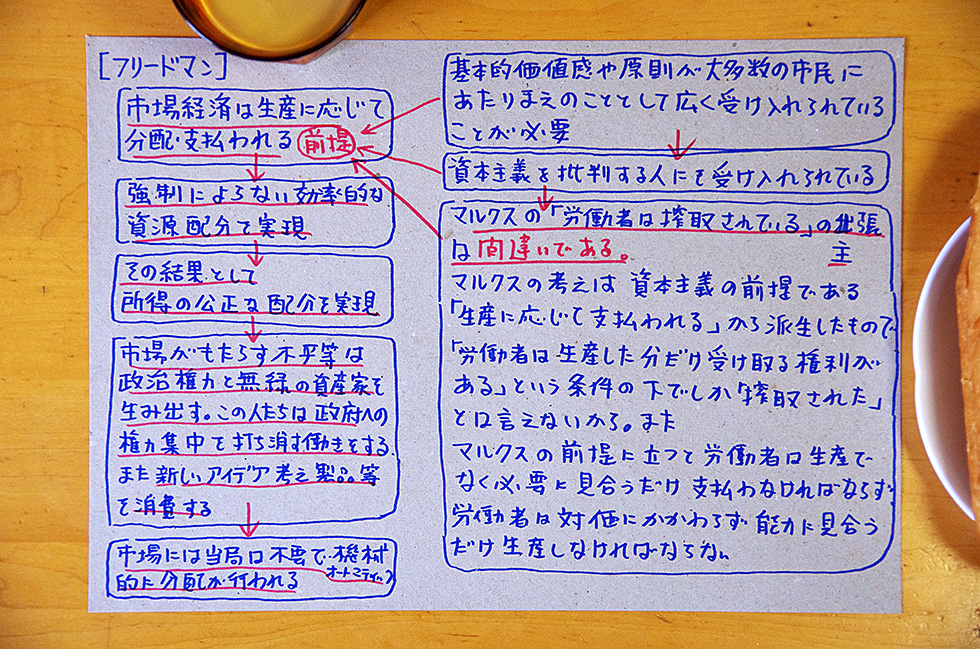 [フリードマン]
市場経済は生産に応じて
分配・支払われる 前提
強制によらない効率的な
資源配分を実現
その結果として
所得の公正な配分を実現
市場がもたらす不平等は
政治権力と無縁の資産家を
生み出す。この人たちは政府への
権力集中を打ち消す働きをする
また新しいアイデア考え製品等
を消費する
市場には当局は不要で機械
的に分配が行われる オートマティック
基本的価値感や原則が大多数の市民に
あたりまえのこととして広く受け入れられている
ことが必要
資本主義を批判する人にも受け入れられている
マルクスの「労働者は搾取されている」の主張
は間違いである。
主
マルクスの考えは資本主義の前提である
「生産に応じて支払われる」から派生したもので
「労働者は生産した分だけ受け取る権利が
ある」という条件の下でしか「搾取された」
とは言えないから。また
マルクスの前提に立つと労働者は生産で
なく必要に見合うだけ支払わなければならず
労働者は対価にかかわらず能力に見合う
だけ生産しなければならない